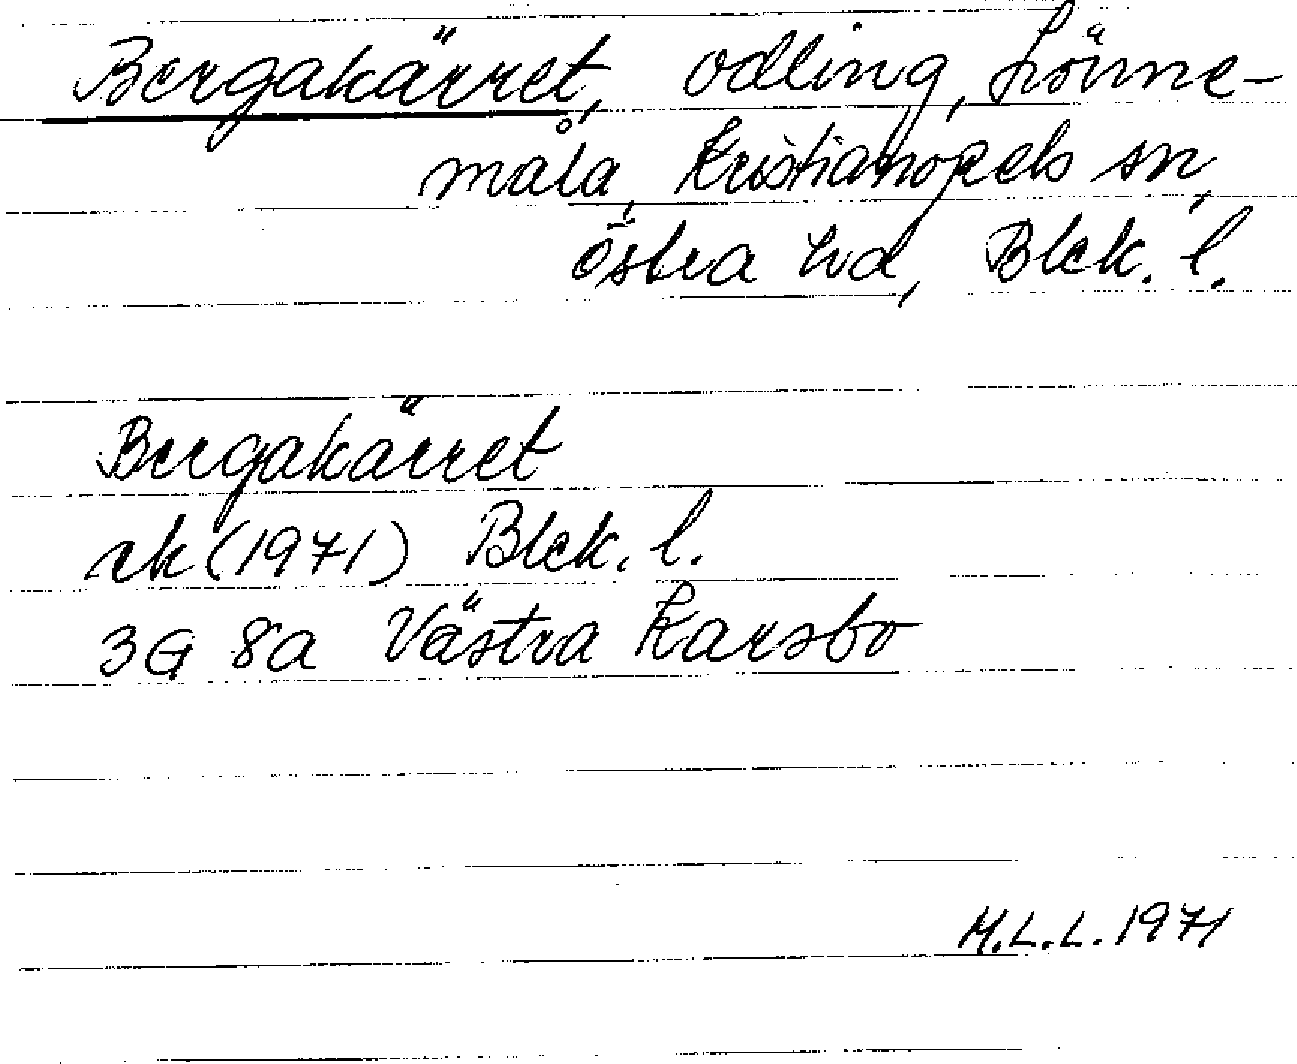 Bergakärret, odling, Lönne-
måla, Kristianopels sn,
Östra hd, Blek. l.
Bergakärret
ek (1971) Blek. l.
3G 8a Västra Karsbo
M.L.L. 1971